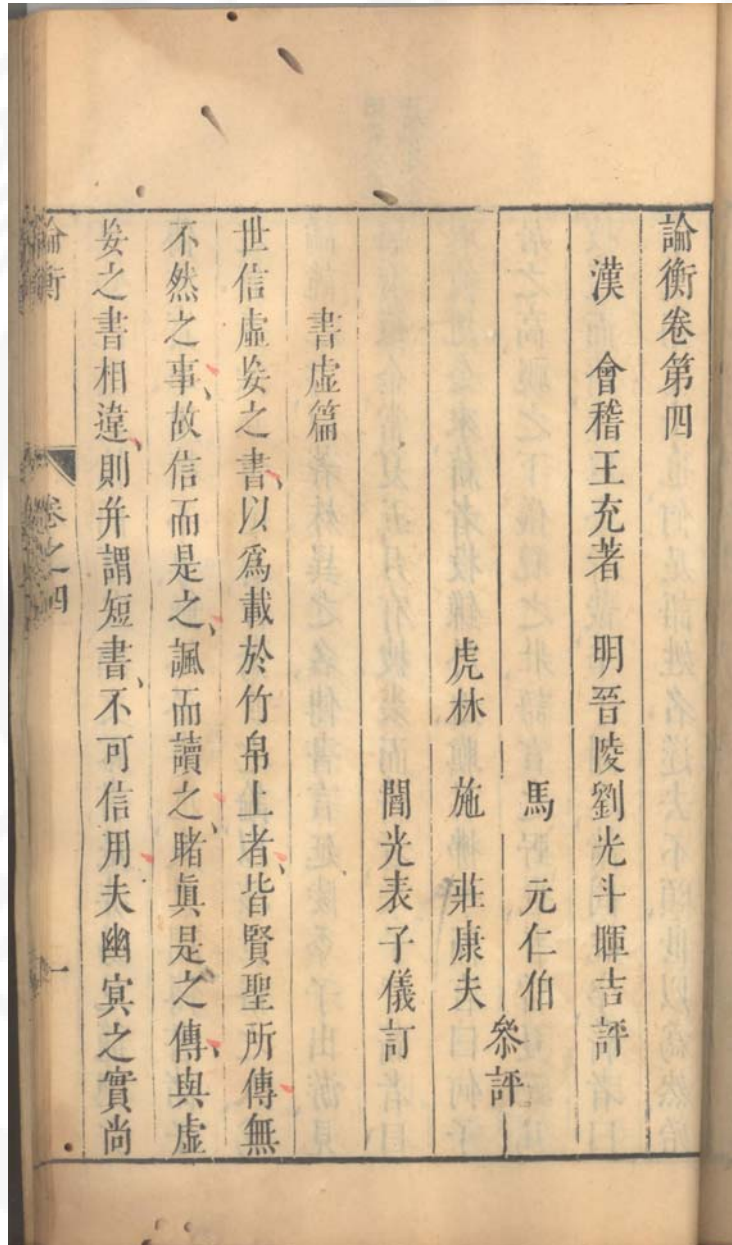 論衡卷第四
漢　會稽王充著　明晉陵劉光斗暉吉評
馬　元仁伯
虎林　施　莊康夫
叅評
閻光表子儀訂
書虛篇
世信虛妄之書、以爲載於竹帛上者、皆賢聖所傳無
不然之事、故信而是之、諷而讀之、睹眞是之傳、與虛
妄之書相違、則幷謂短書、不可信用夫幽冥之實尚
論衡　卷之四　一